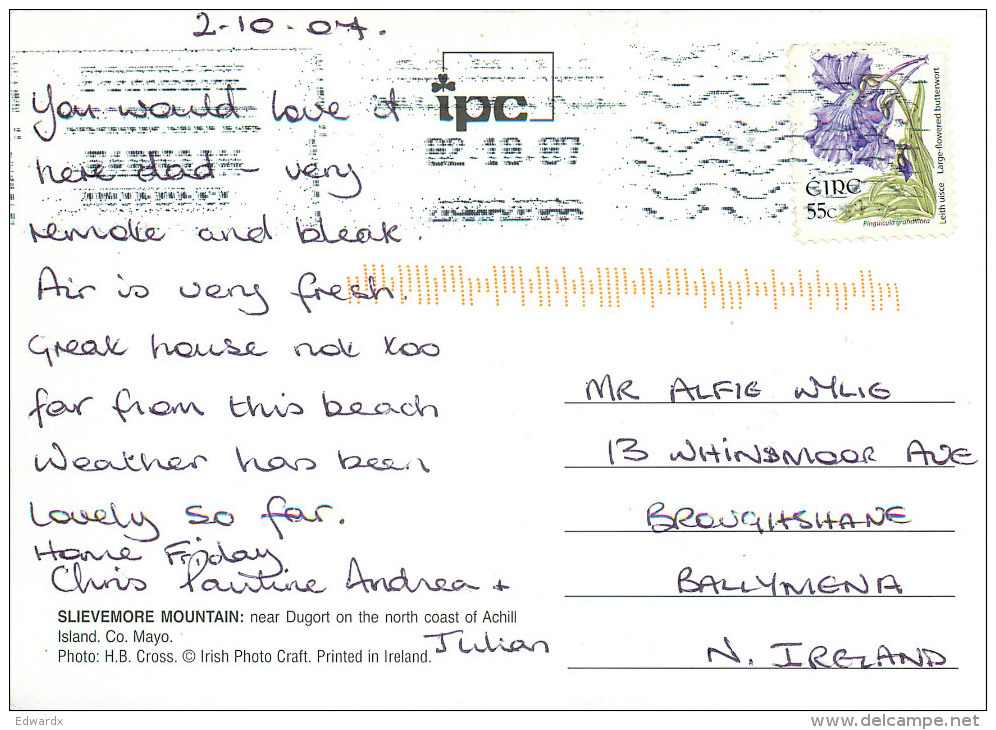 2-10-07.
ipc
02.10.07
ÉIRE
55c
Pinguicula grandiflora
Leith uisce Large-flowered butterwort
You would love it
here dad - very
remote and bleak.
Air is very fresh.
Great house not too
far from this beach
Weather has been
lovely so far.
Home Friday
Chris Pauline Andrea +
Julian
MR ALFIE WYLIE
13 WHINSMOOR AVE
BROUGHSHANE
BALLYMENA
N. IRELAND
SLIEVEMORE MOUNTAIN: near Dugort on the north coast of Achill
Island. Co. Mayo.
Photo: H.B. Cross. © Irish Photo Craft. Printed in Ireland.
Edwardx
www.delcampe.net